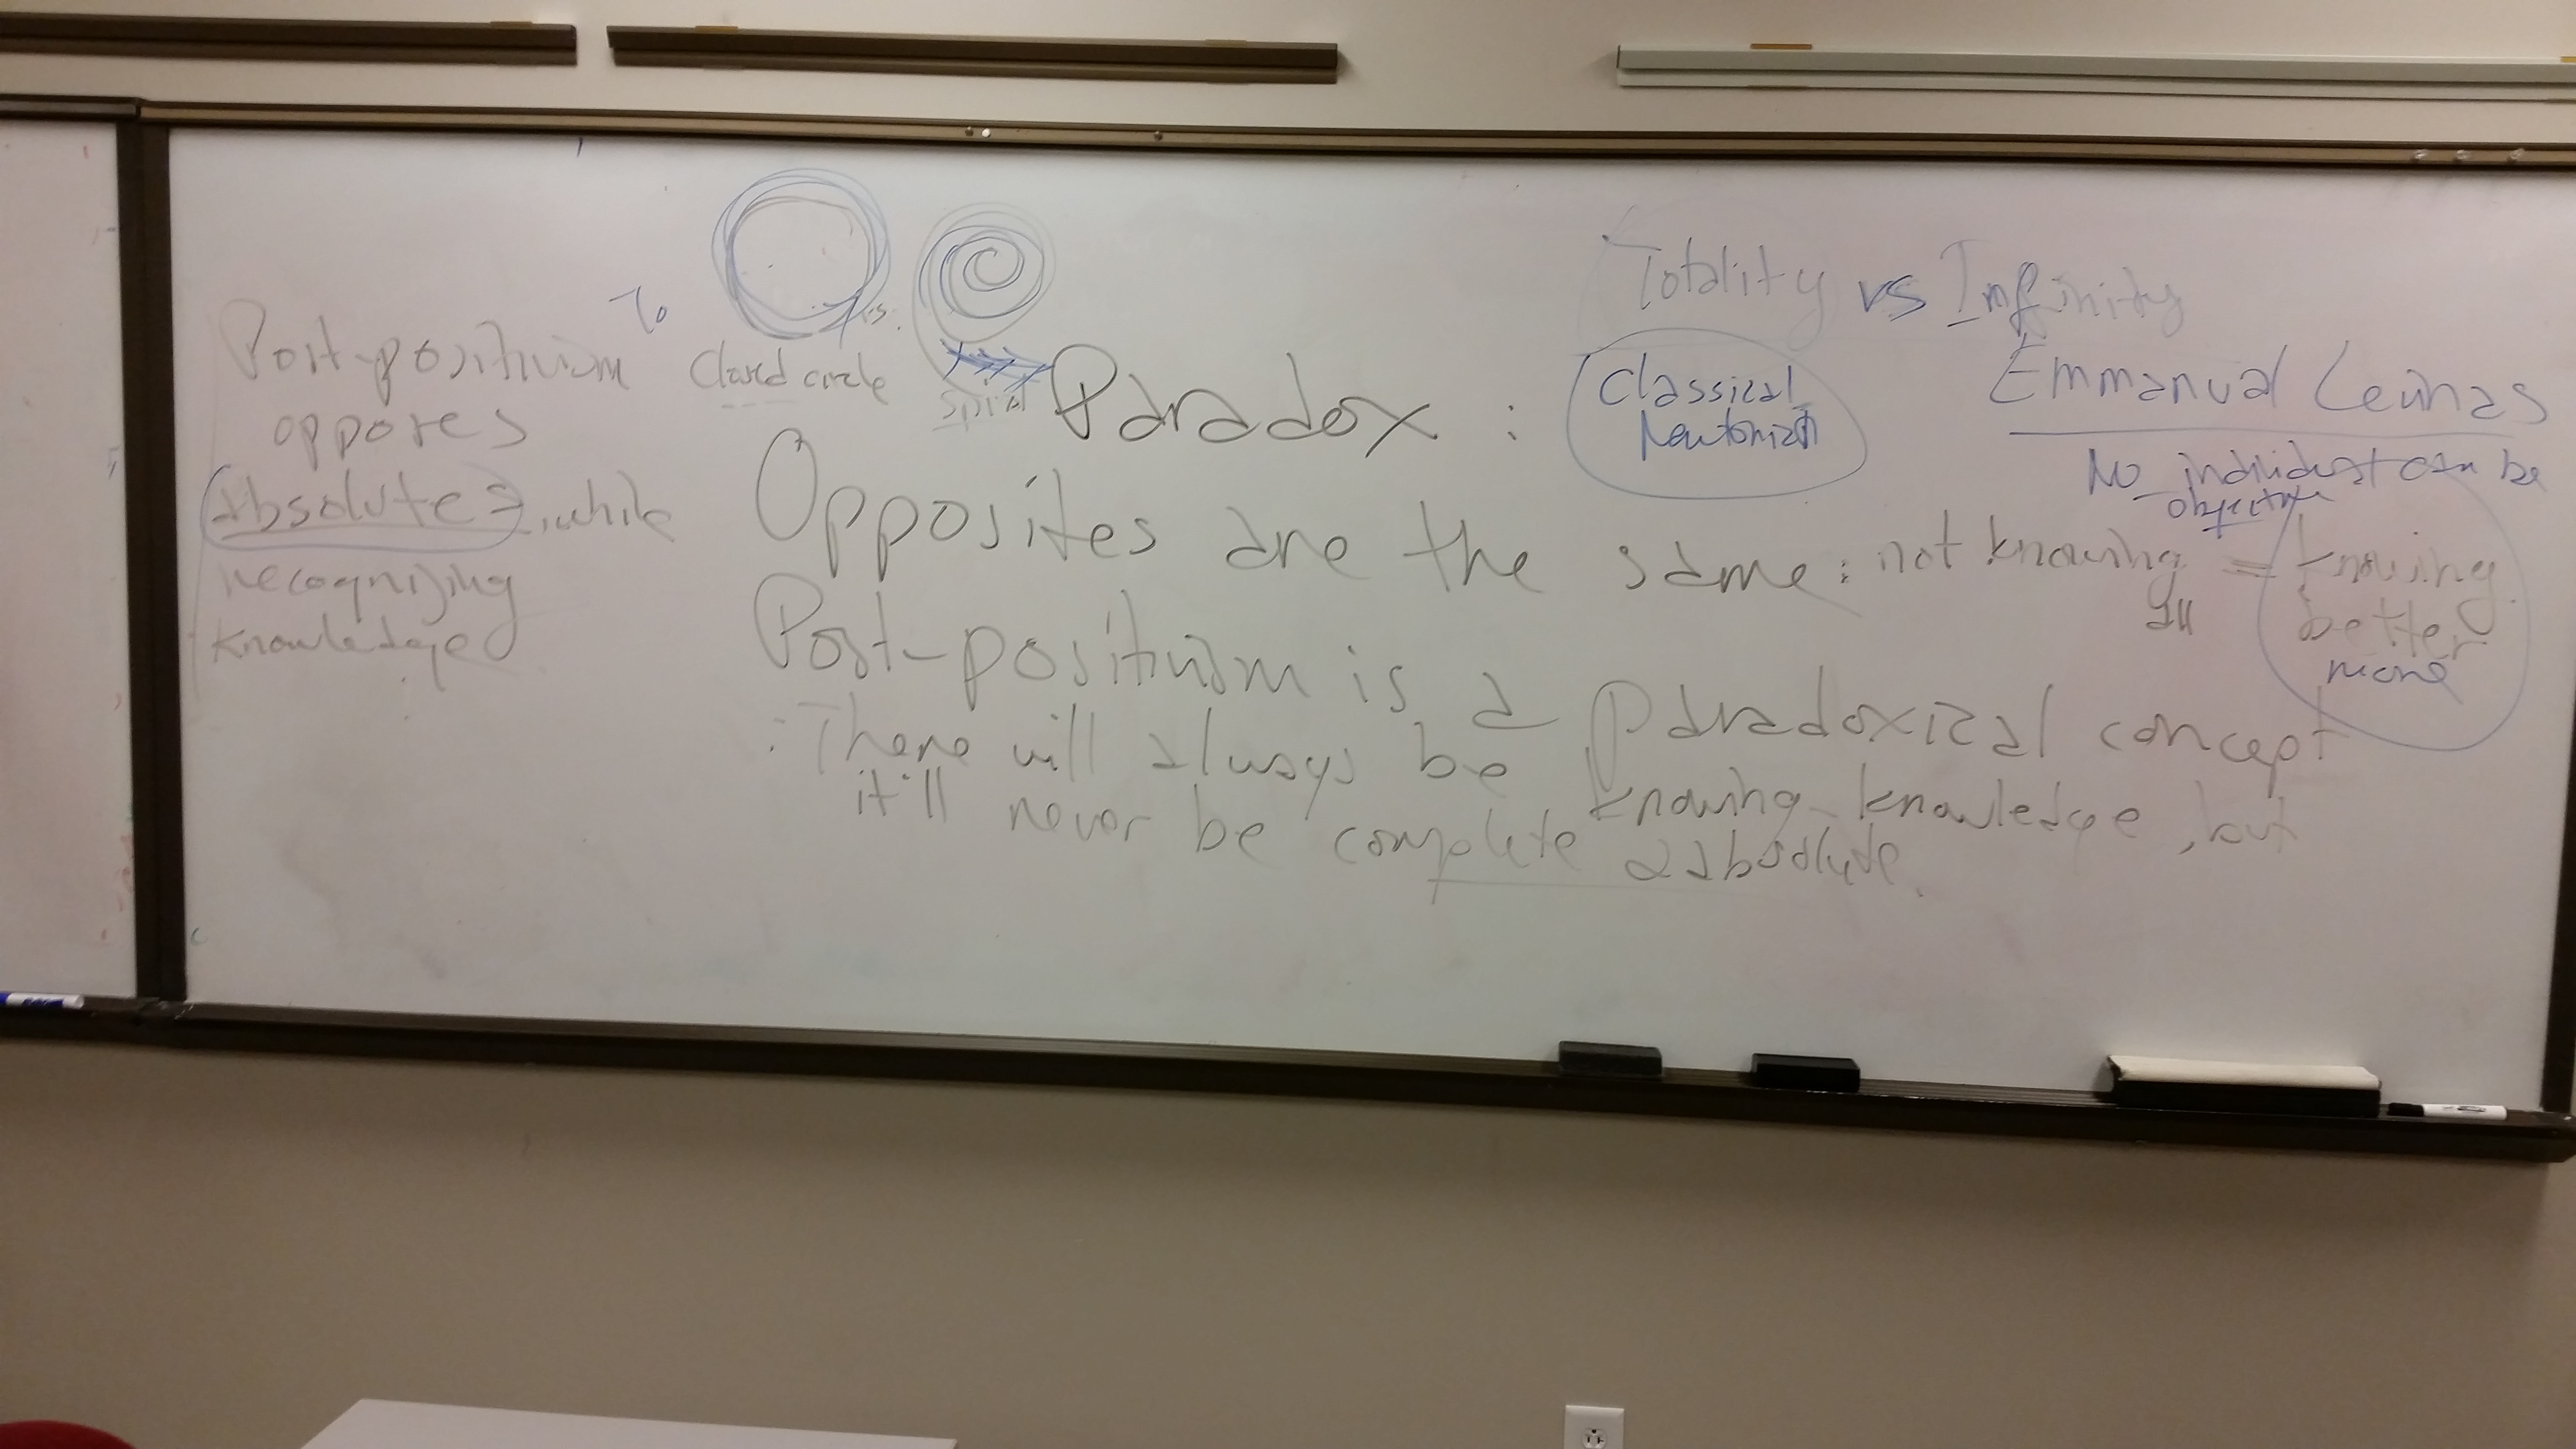 Post-positivism
opposes
absolutes, while
recognizing
knowledge
To
vs.
Closed circle
spiral
Totality vs Infinity
Emmanual Levinas
Classical
Newtonian
No individual can be
objective
Paradox :
Opposites are the same : not knowing = knowing
all
better
more
Post-positivism is a Paradoxical concept
: There will always be knowing knowledge, but
it'll never be complete & absolute.